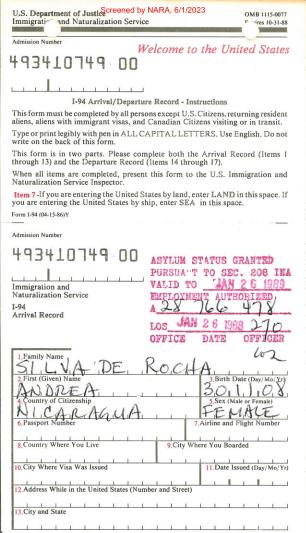 Screened by NARA, 6/1/2023
U.S. Department of Justice OMB 1115-0077
Immigration and Naturalization Service Expires 10-31-88
Admission Number
Welcome to the United States
493410749 00
I-94 Arrival/Departure Record - Instructions
This form must be completed by all persons except U.S. Citizens, returning resident
aliens, aliens with immigrant visas, and Canadian Citizens visiting or in transit.
Type or print legibly with pen in ALL CAPITAL LETTERS. Use English. Do not
write on the back of this form.
This form is in two parts. Please complete both the Arrival Record (Items 1
through 13) and the Departure Record (Items 14 through 17).
When all items are completed, present this form to the U.S. Immigration and
Naturalization Service Inspector.
Item 7 -If you are entering the United States by land, enter LAND in this space. If
you are entering the United States by ship, enter SEA in this space.
Form I-94 (04-15-86)Y
Admission Number
493410749 00
ASYLUM STATUS GRANTED
PURSUA'T TO SEC. 208 INA
VALID TO JAN 26 1989
EMPLOYMENT AUTHORIZED
A 28 766 478
LOS JAN 26 1988 270
OFFICE DATE OFFICER
Immigration and
Naturalization Service
I-94
Arrival Record
1.Family Name
SILVA DE ROCHA
2.First (Given) Name 3.Birth Date (Day/Mo/Yr)
ANDREA 30.11.08
4.Country of Citizenship 5.Sex (Male or Female)
NICARAGUA FEMALE
6.Passport Number 7.Airline and Flight Number
8.Country Where You Live 9.City Where You Boarded
10.City Where Visa Was Issued 11.Date Issued (Day/Mo/Yr)
12.Address While in the United States (Number and Street)
13.City and State